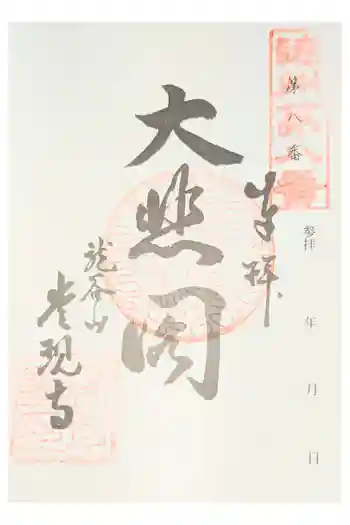 第八番
奉拝
参拝 年 月 日
大悲閣
龍谷山
常現寺